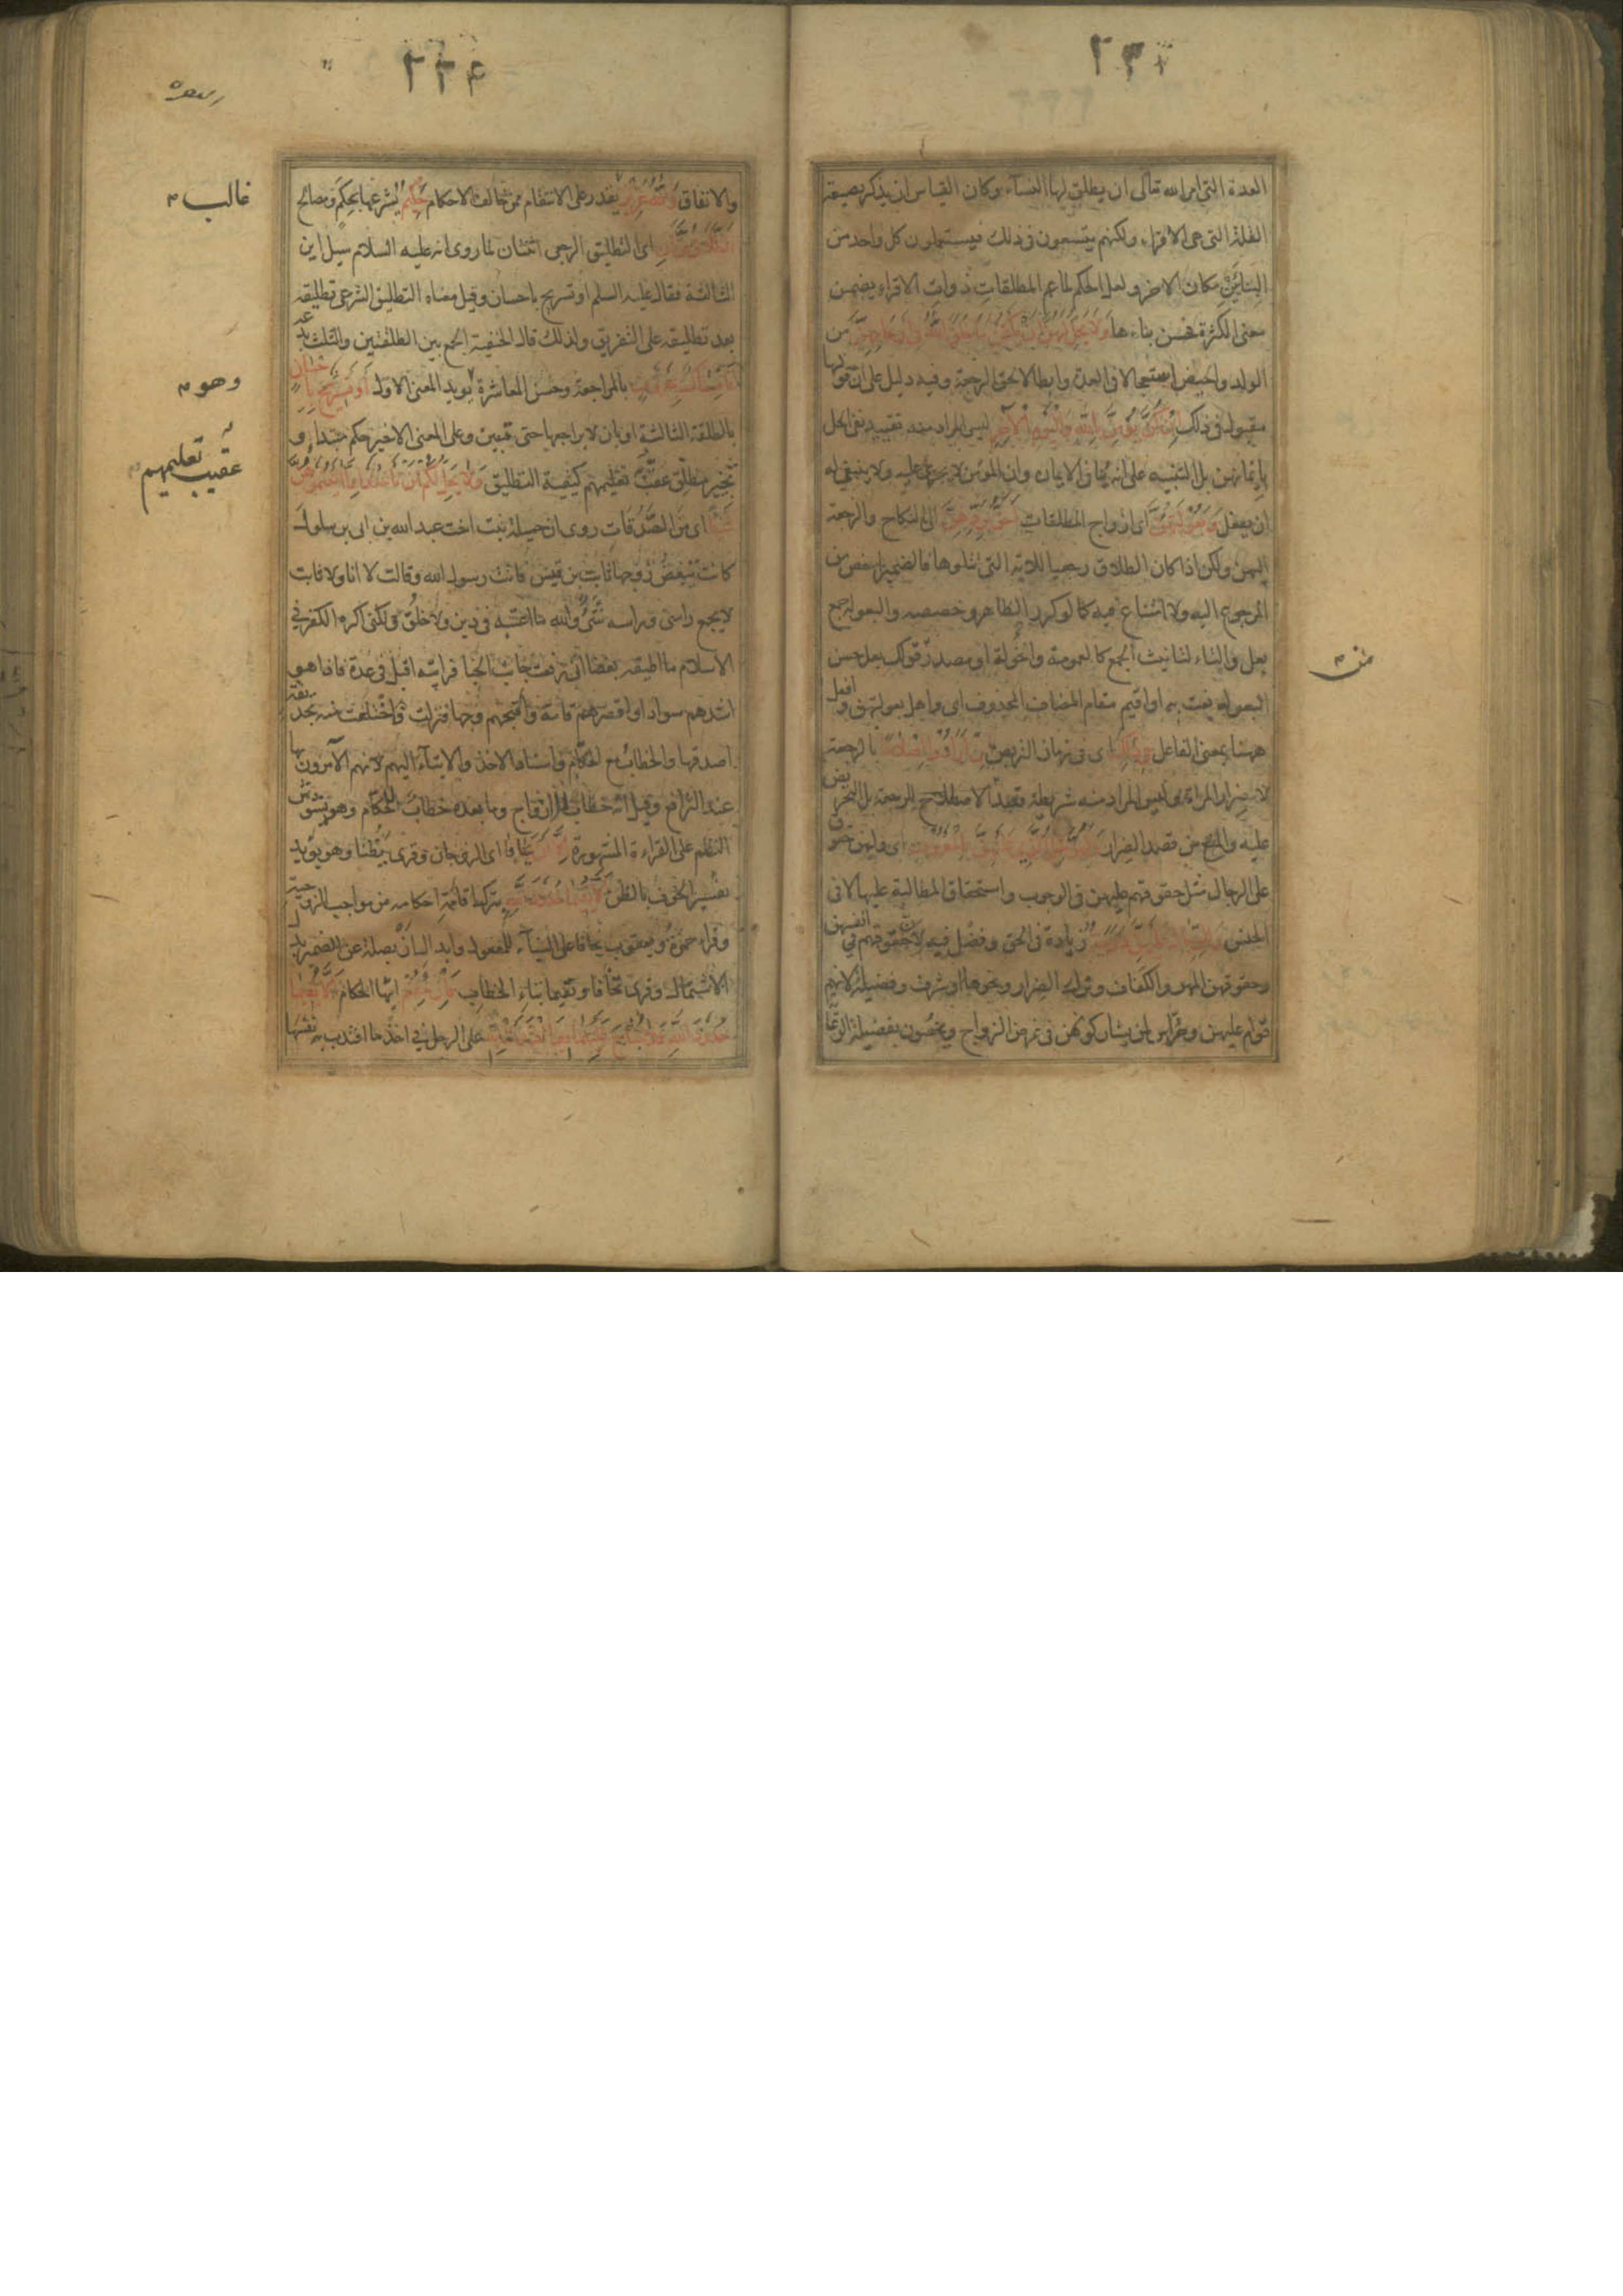 العدة التي امر الله تعالى ان يطلق لها النساء وكان القياس ان يذكر بصيغة
القلة التي هي الاقراء ولكنهم يتسعون في ذلك فيستعملون كل واحد من
البنائين مكان الاخر ولعل الحكم لما عم المطلقات ذوات الاقراء يضمن
معنى الكثرة فحسن بناءها وَلَا يَحِلُّ لَهُنَّ أَنْ يَكْتُمْنَ مَا خَلَقَ اللَّهُ فِي أَرْحَامِهِنَّ من
الولد والحيض استعجالا في العدة وابطالا لحق الرجعة وفيه دليل على ان قولها
مقبول في ذلك إِنْ كُنَّ يُؤْمِنَّ بِاللَّهِ وَالْيَوْمِ الْآخِرِ ليس المراد منه تقييد نفي الحل
بايمانهن بل التنبيه على انه ينافي الايمان وان المؤمن لا يجرى عليه ولا ينبغي له
ان يفعل وَبُعُولَتُهُنَّ اى ازواج المطلقات أَحَقُّ بِرَدِّهِنَّ الى النكاح والرجعة
اليهن ولكن اذا كان الطلاق رجعيا للاية التي تتلوها فالضمير اخص من
المرجوع اليه ولا امتناع فيه كما لو كرر الظاهر وخصصه والبعولة جمع
بعل والتاء لتانيث الجمع كالعمومة والخؤلة او مصدر من قولك بعل حسن
البعولة نعت به او اقيم مقام المضاف المحذوف اى واهل بعولتهن وافعل
ههنا بمعنى الفاعل فِي ذَلِكَ اى في زمان التربص إِنْ أَرَادُوا إِصْلَاحًا بالرجعة
لا لضرار المراة وليس المراد منه شريطة قصد الاصطلاح للرجعة بل التحريض
عليه والمنع من قصد الضرار وَلَهُنَّ مِثْلُ الَّذِي عَلَيْهِنَّ بِالْمَعْرُوفِ اى ولهن حقوق
على الرجال مثل حقوقهم عليهن في الوجوب واستحقاق المطالبة عليها لا في
الجنس وَلِلرِّجَالِ عَلَيْهِنَّ دَرَجَةٌ زيادة في الحق وفضل فيه لان حقوقهم في انفسهن
وحقوقهن المهر والكفاف وترك الضرار ونحوها او شرف وفضيلة لانهم
قوام عليهن وحراس لهن يشاركونهن في غرض الزواج ويخصون بفضيلة الرعا
من
والانفاق وَاللَّهُ عَزِيزٌ يقدر على الانتقام ممن خالف الاحكام حَكِيمٌ يشرعها لحكم ومصالح
الطَّلَاقُ مَرَّتَانِ اى التطليق الرجعي اثنتان لما روى انه عليه السلام سيل اين
الثالثة فقال عليه السلم او تسريح باحسان وقيل معناه التطليق الشرعي تطليقة
بعد تطليقة على التفريق ولذلك قال الحنفية الجمع بين الطلقتين والثلث بدعة
فَإِمْسَاكٌ بِمَعْرُوفٍ بالمراجعة وحسن المعاشرة يويد المعنى الاول أَوْ تَسْرِيحٌ بِإِحْسَانٍ
بالطلقة الثالثة او بان لا يراجعها حتى تبين وعلى المعنى الاخير حكم مبتداء و
تخيير مطلق عقب تعليمهم كيفية التطليق وَلَا يَحِلُّ لَكُمْ أَنْ تَأْخُذُوا مِمَّا آتَيْتُمُوهُنَّ
شَيْئًا اى من الصدقات روى ان جميلة بنت اخت عبد الله بن ابى بن سلول
كانت تبغض زوجها ثابت بن قيس فاتت رسول الله وقالت لا انا ولا ثابت
لا يجمع راسى وراسه شئ والله ما اعتبه في دين ولا خلق ولكنى اكره الكفر في
الاسلام ما اطيقه بغضا انى رفعت جانب الخبا فرايته اقبل في عدة فاذا هو
اشدهم سوادا واقصرهم قامة واقبحهم وجها فنزلت فاختلعت منه بحديقة
اصدقها والخطاب مع الحكام واسناد الاخذ والايتاء اليهم لانهم الآمرون بها
عند الترافع وقيل انه خطاب للازواج وما بعده خطاب للحكام وهو يشوش
النظم على القراءة المشهورة إِلَّا أَنْ يَخَافَا اى الزوجان وقرى يظنا وهو يؤيد
تفسير الخوف بالظن أَلَّا يُقِيمَا حُدُودَ اللَّهِ بترك اقامة احكامه من مواجب الزوجية
وقراء حمزة ويعقوب يخافا على البناء للمفعول وابدال ان بصلته عن الضمير بدل
الاشتمال وقرى تخافا وتقيما بتاء الخطاب فَإِنْ خِفْتُمْ ايها الحكام أَلَّا يُقِيمَا
حُدُودَ اللَّهِ فَلَا جُنَاحَ عَلَيْهِمَا فِيمَا افْتَدَتْ بِهِ على الرجل في اخذ ما افتدت به نفسها
غالب
وهو
عقيب تعليمهم